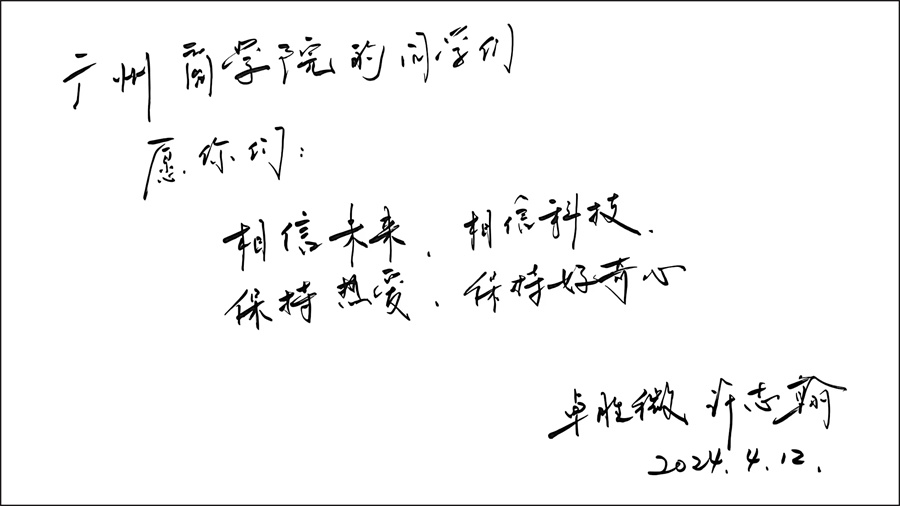 广州商学院的同学们
愿你们：
相信未来、相信科技、
保持热爱、保持好奇心
卓胜微 许志翰
2024.4.12.